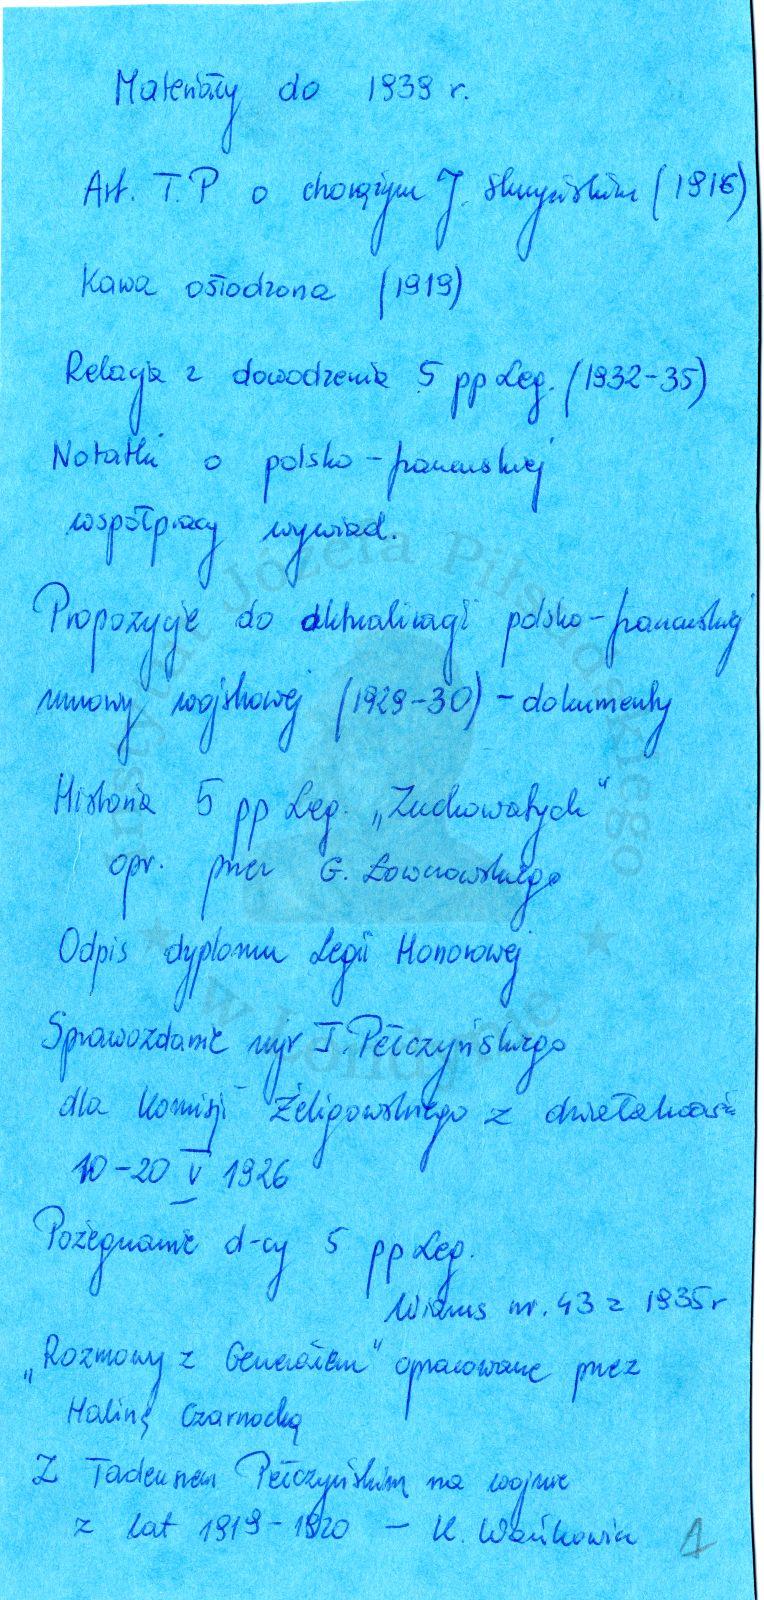 Materiały do 1939 r.
Art. T.P o chorążym J. (1916)
Kawa osłodzona (1919)
Relacja z dowodzenia 5 pp Leg. (1932-35)
Notatki o polsko-francuskiej
współpracy wywiad.
Propozycje do aktualizacji polsko-francuskiej
umowy wojskowej (1929-30) - dokumenty
Historia 5 pp Leg. „Zuchowatych"
opr. przez G. Łowczowskiego
Odpis dyplomu Legii Honorowej
Sprawozdanie mjr T. Pełczyńskiego
dla Komisji Żeligowskiego z działalności
10-20 V 1926
Pożegnanie d-cy 5 pp Leg.
Wiarus nr. 43 z 1935 r
„Rozmowy z Generałem" opracowane przez
Halinę Czarnocką
Z Tadeuszem Pełczyńskim na wojnie
z lat 1919-1920 - K. Wańkowicz
1
Instytut Józefa Piłsudskiego
w Londynie